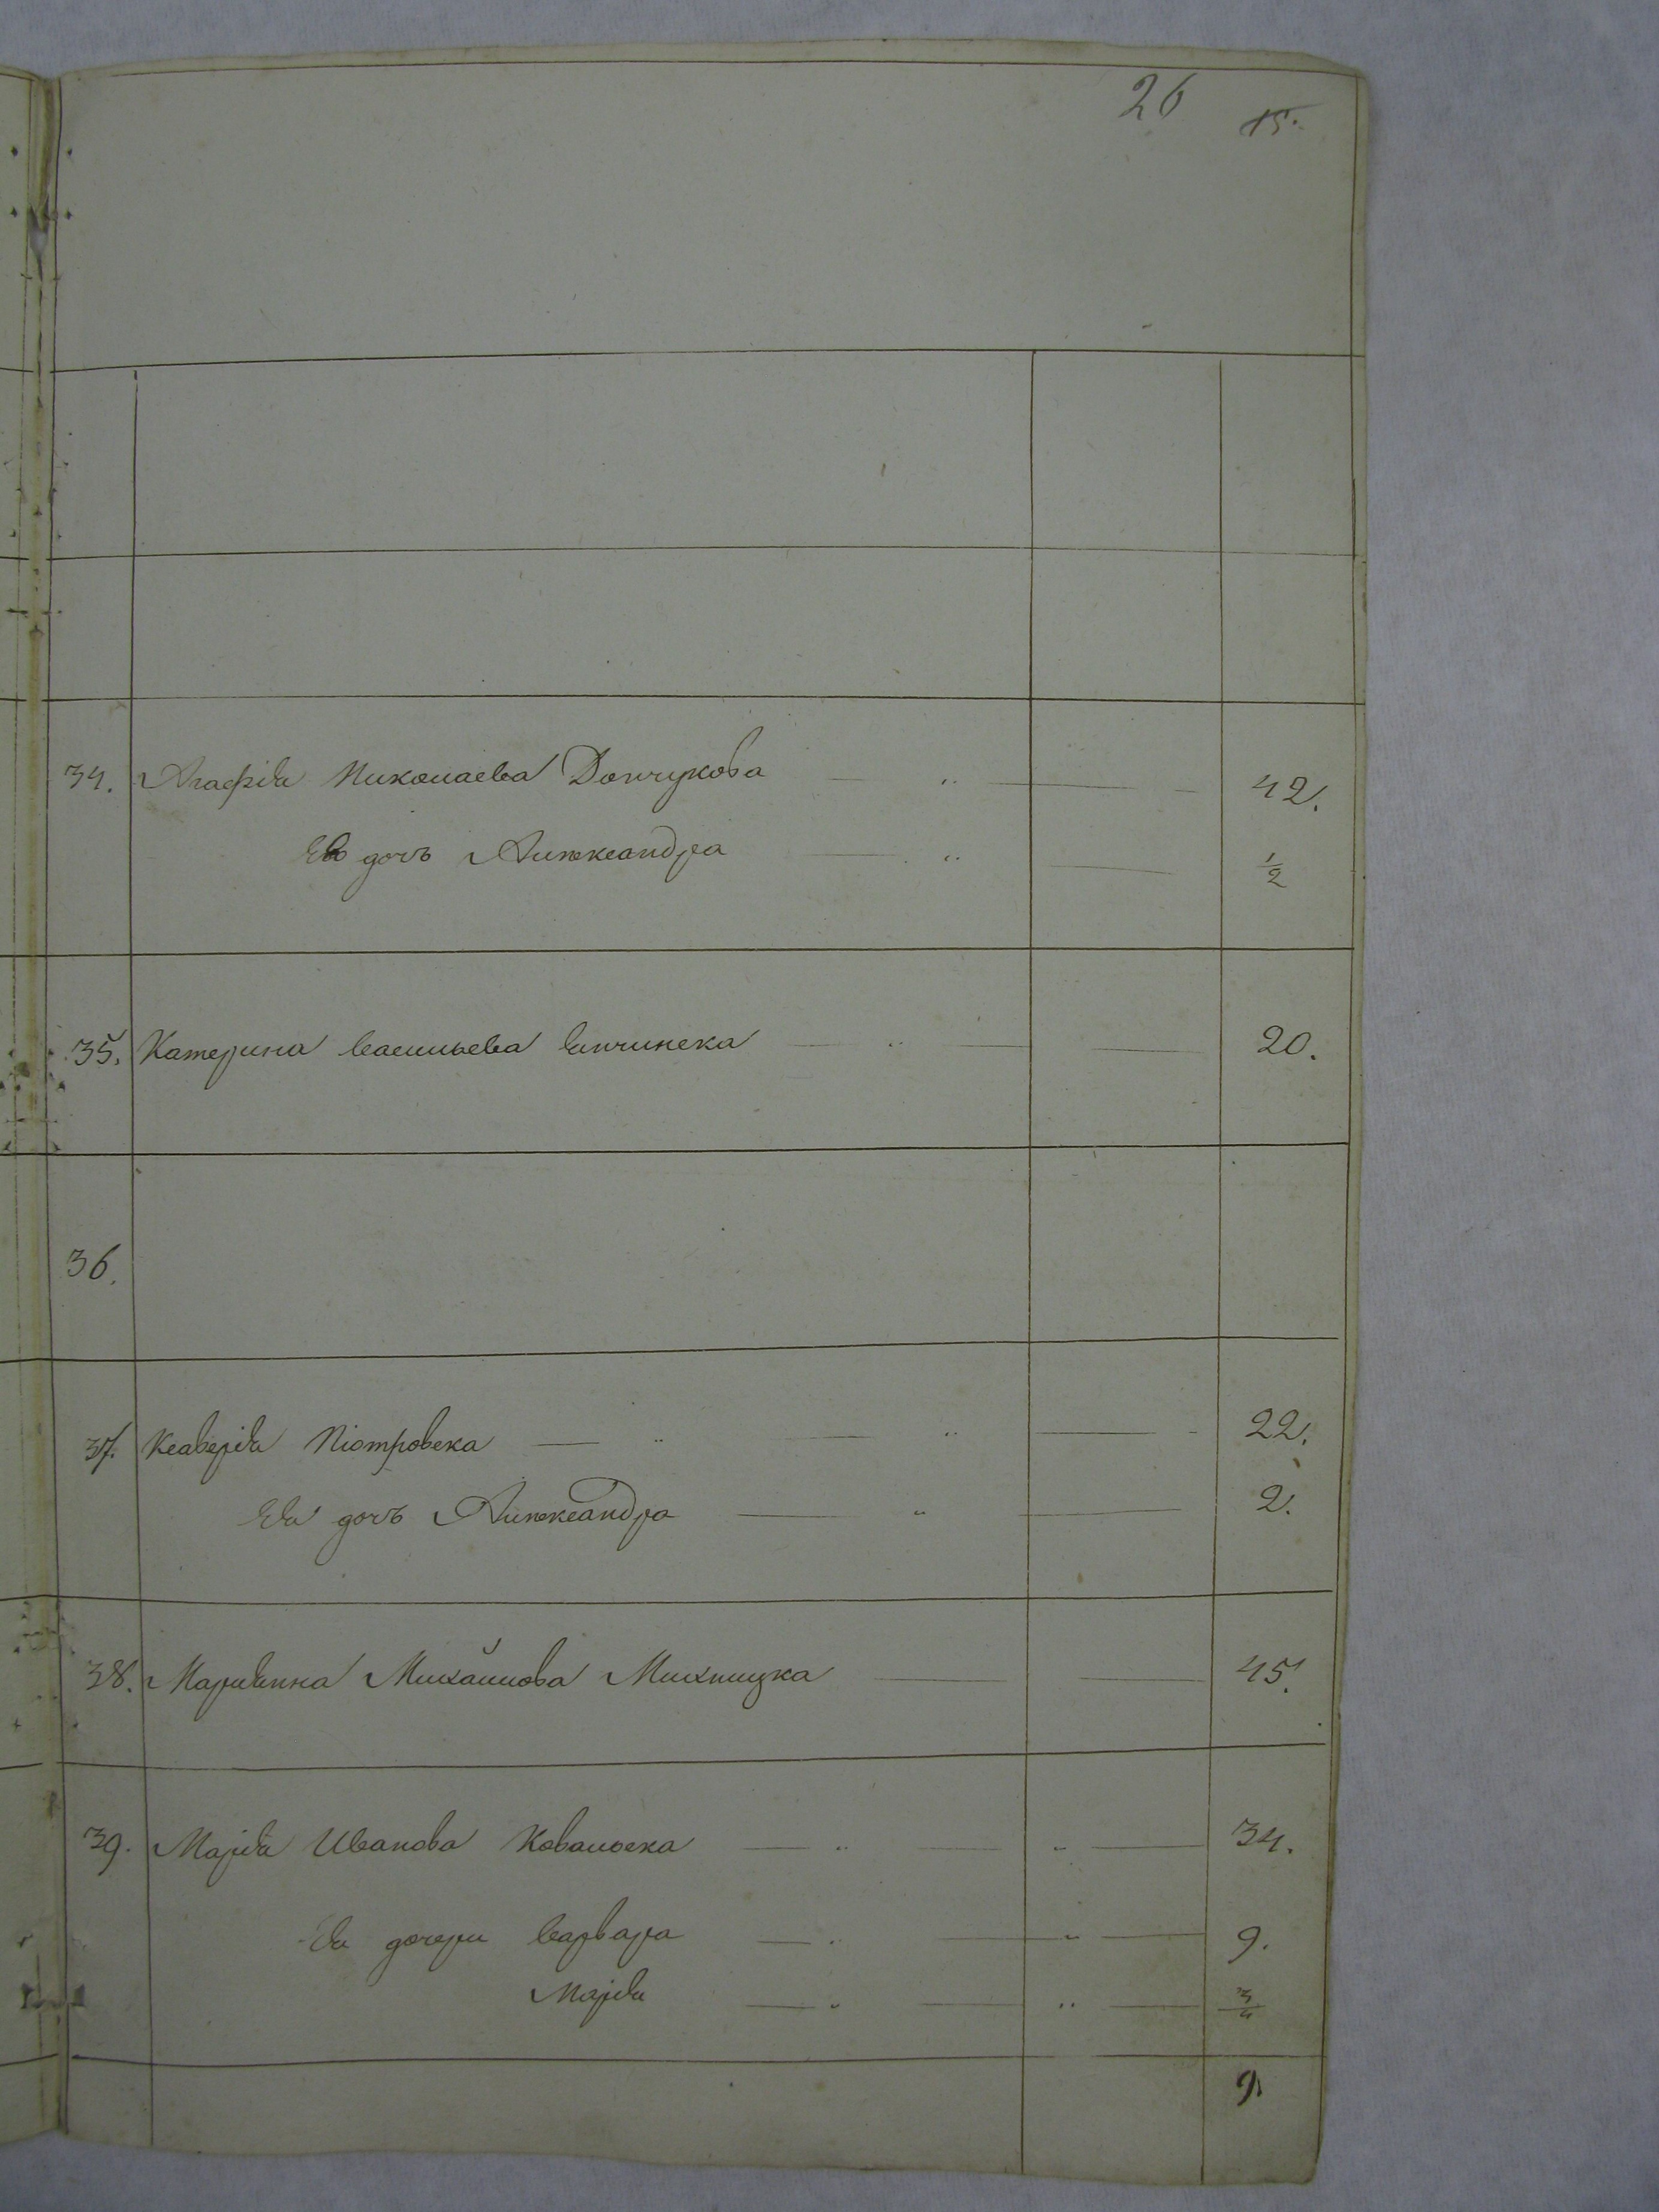 26 15.
34. Агафія Николаева Дончукова — „ — 42.
Ея дочь Александра — „ — 1/2
35. Катерина Васильева — „ — 20.
36.
37. Ксаверія Піотровска — „ — „ — 22.
Ея дочь Александра — „ — 2.
38. Маріянна Михайлова Михницка — 45.
39. Марія Иванова Ковальска — „ — „ — 34.
Ея дочери Варвара — „ — „ — 9.
Марія — „ — „ — 3/4
9.